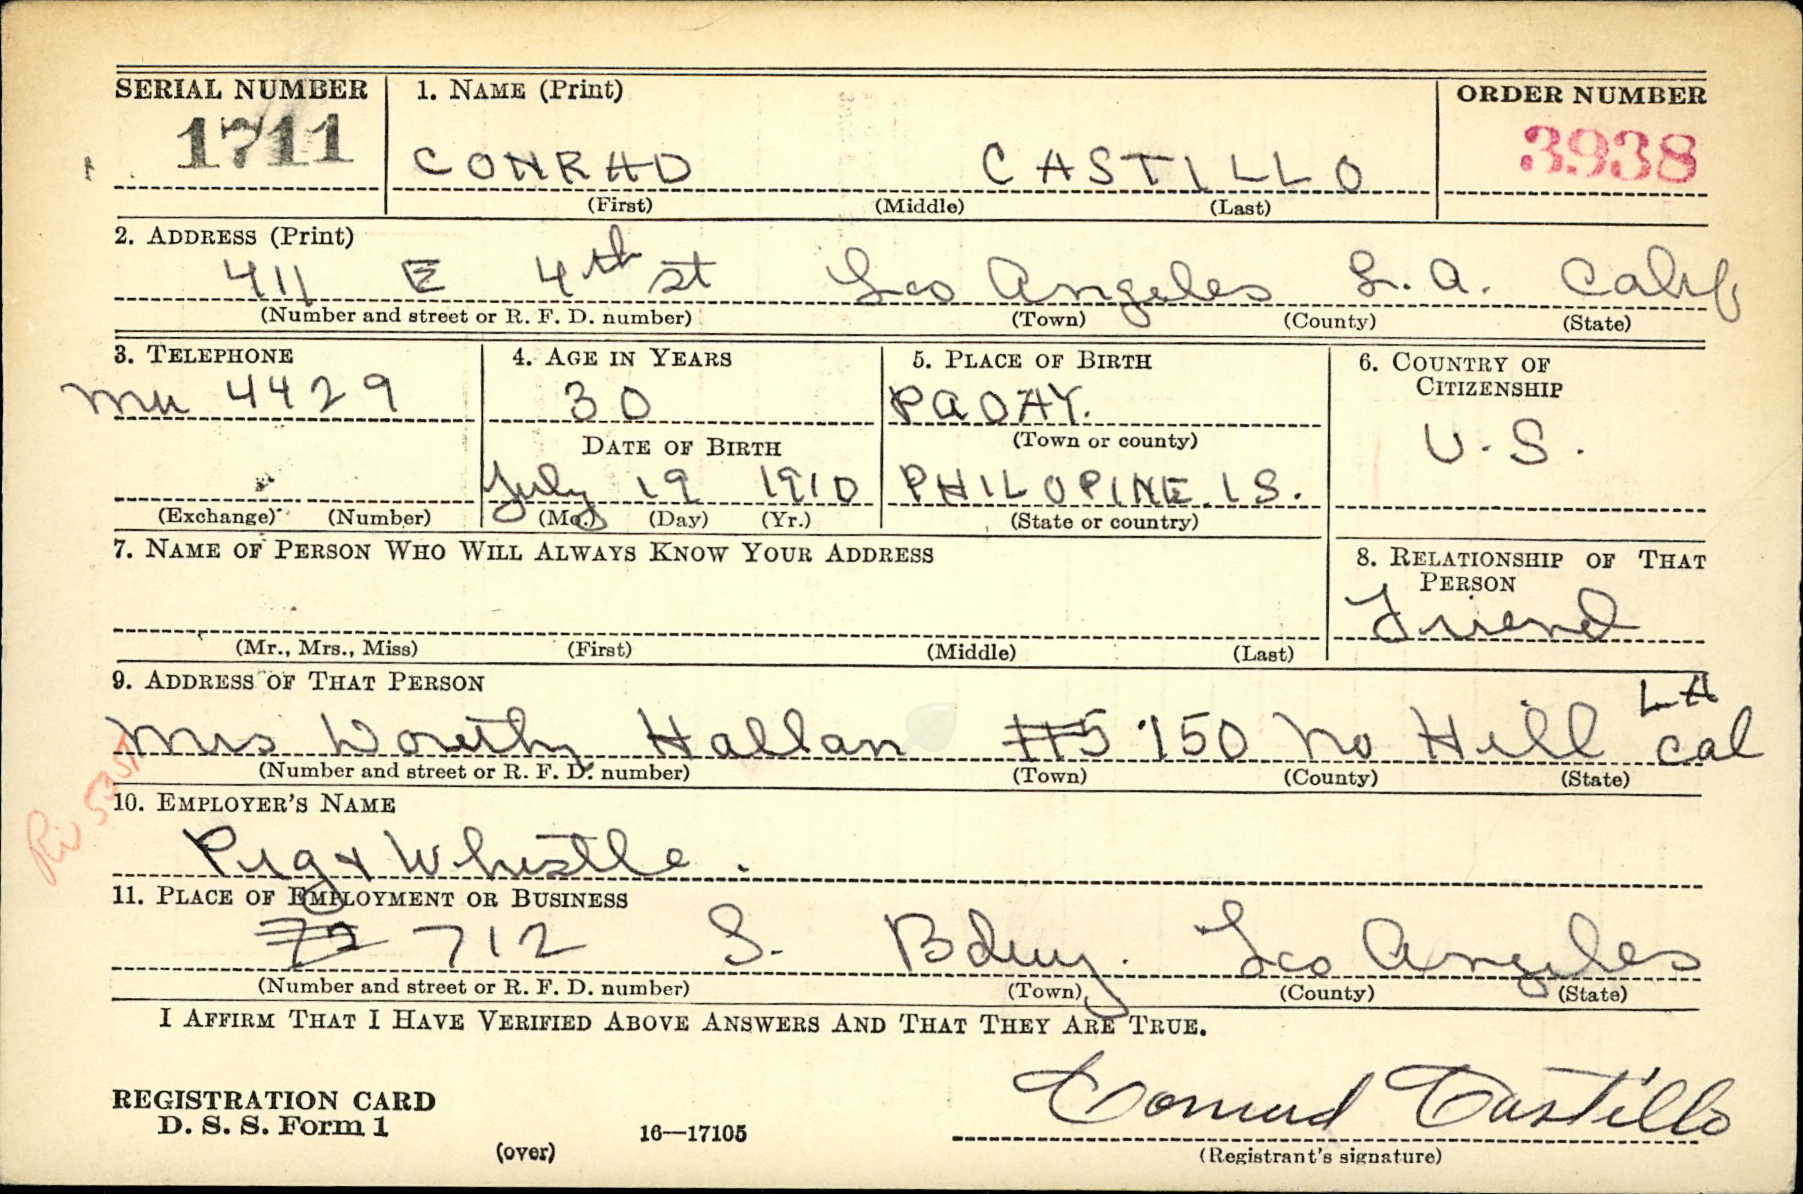 SERIAL NUMBER 1. NAME (Print) ORDER NUMBER
1711 CONRAD CASTILLO 3938
(First) (Middle) (Last)
2. ADDRESS (Print)
411 E 4th st Los Angeles L.A. Calif
(Number and street or R. F. D. number) (Town) (County) (State)
3. TELEPHONE 4. AGE IN YEARS 5. PLACE OF BIRTH 6. COUNTRY OF CITIZENSHIP
Mu 4429 30 PAOAY.
(Town or county)
DATE OF BIRTH U.S.
July 19 1910 PHILOPINE IS.
(Exchange) (Number) (Mo.) (Day) (Yr.) (State or country)
7. NAME OF PERSON WHO WILL ALWAYS KNOW YOUR ADDRESS 8. RELATIONSHIP OF THAT PERSON
Friend
(Mr., Mrs., Miss) (First) (Middle) (Last)
9. ADDRESS OF THAT PERSON
LA
Mrs Worthy Hallan #5 150 No Hill Cal
(Number and street or R. F. D. number) (Town) (County) (State)
10. EMPLOYER'S NAME
Pig & Whistle.
11. PLACE OF EMPLOYMENT OR BUSINESS
72 712 S. Bdwy. Los Angeles
(Number and street or R. F. D. number) (Town) (County) (State)
I AFFIRM THAT I HAVE VERIFIED ABOVE ANSWERS AND THAT THEY ARE TRUE.
REGISTRATION CARD
D. S. S. Form 1
(over) 16—17105
Conrad Castillo
(Registrant's signature)